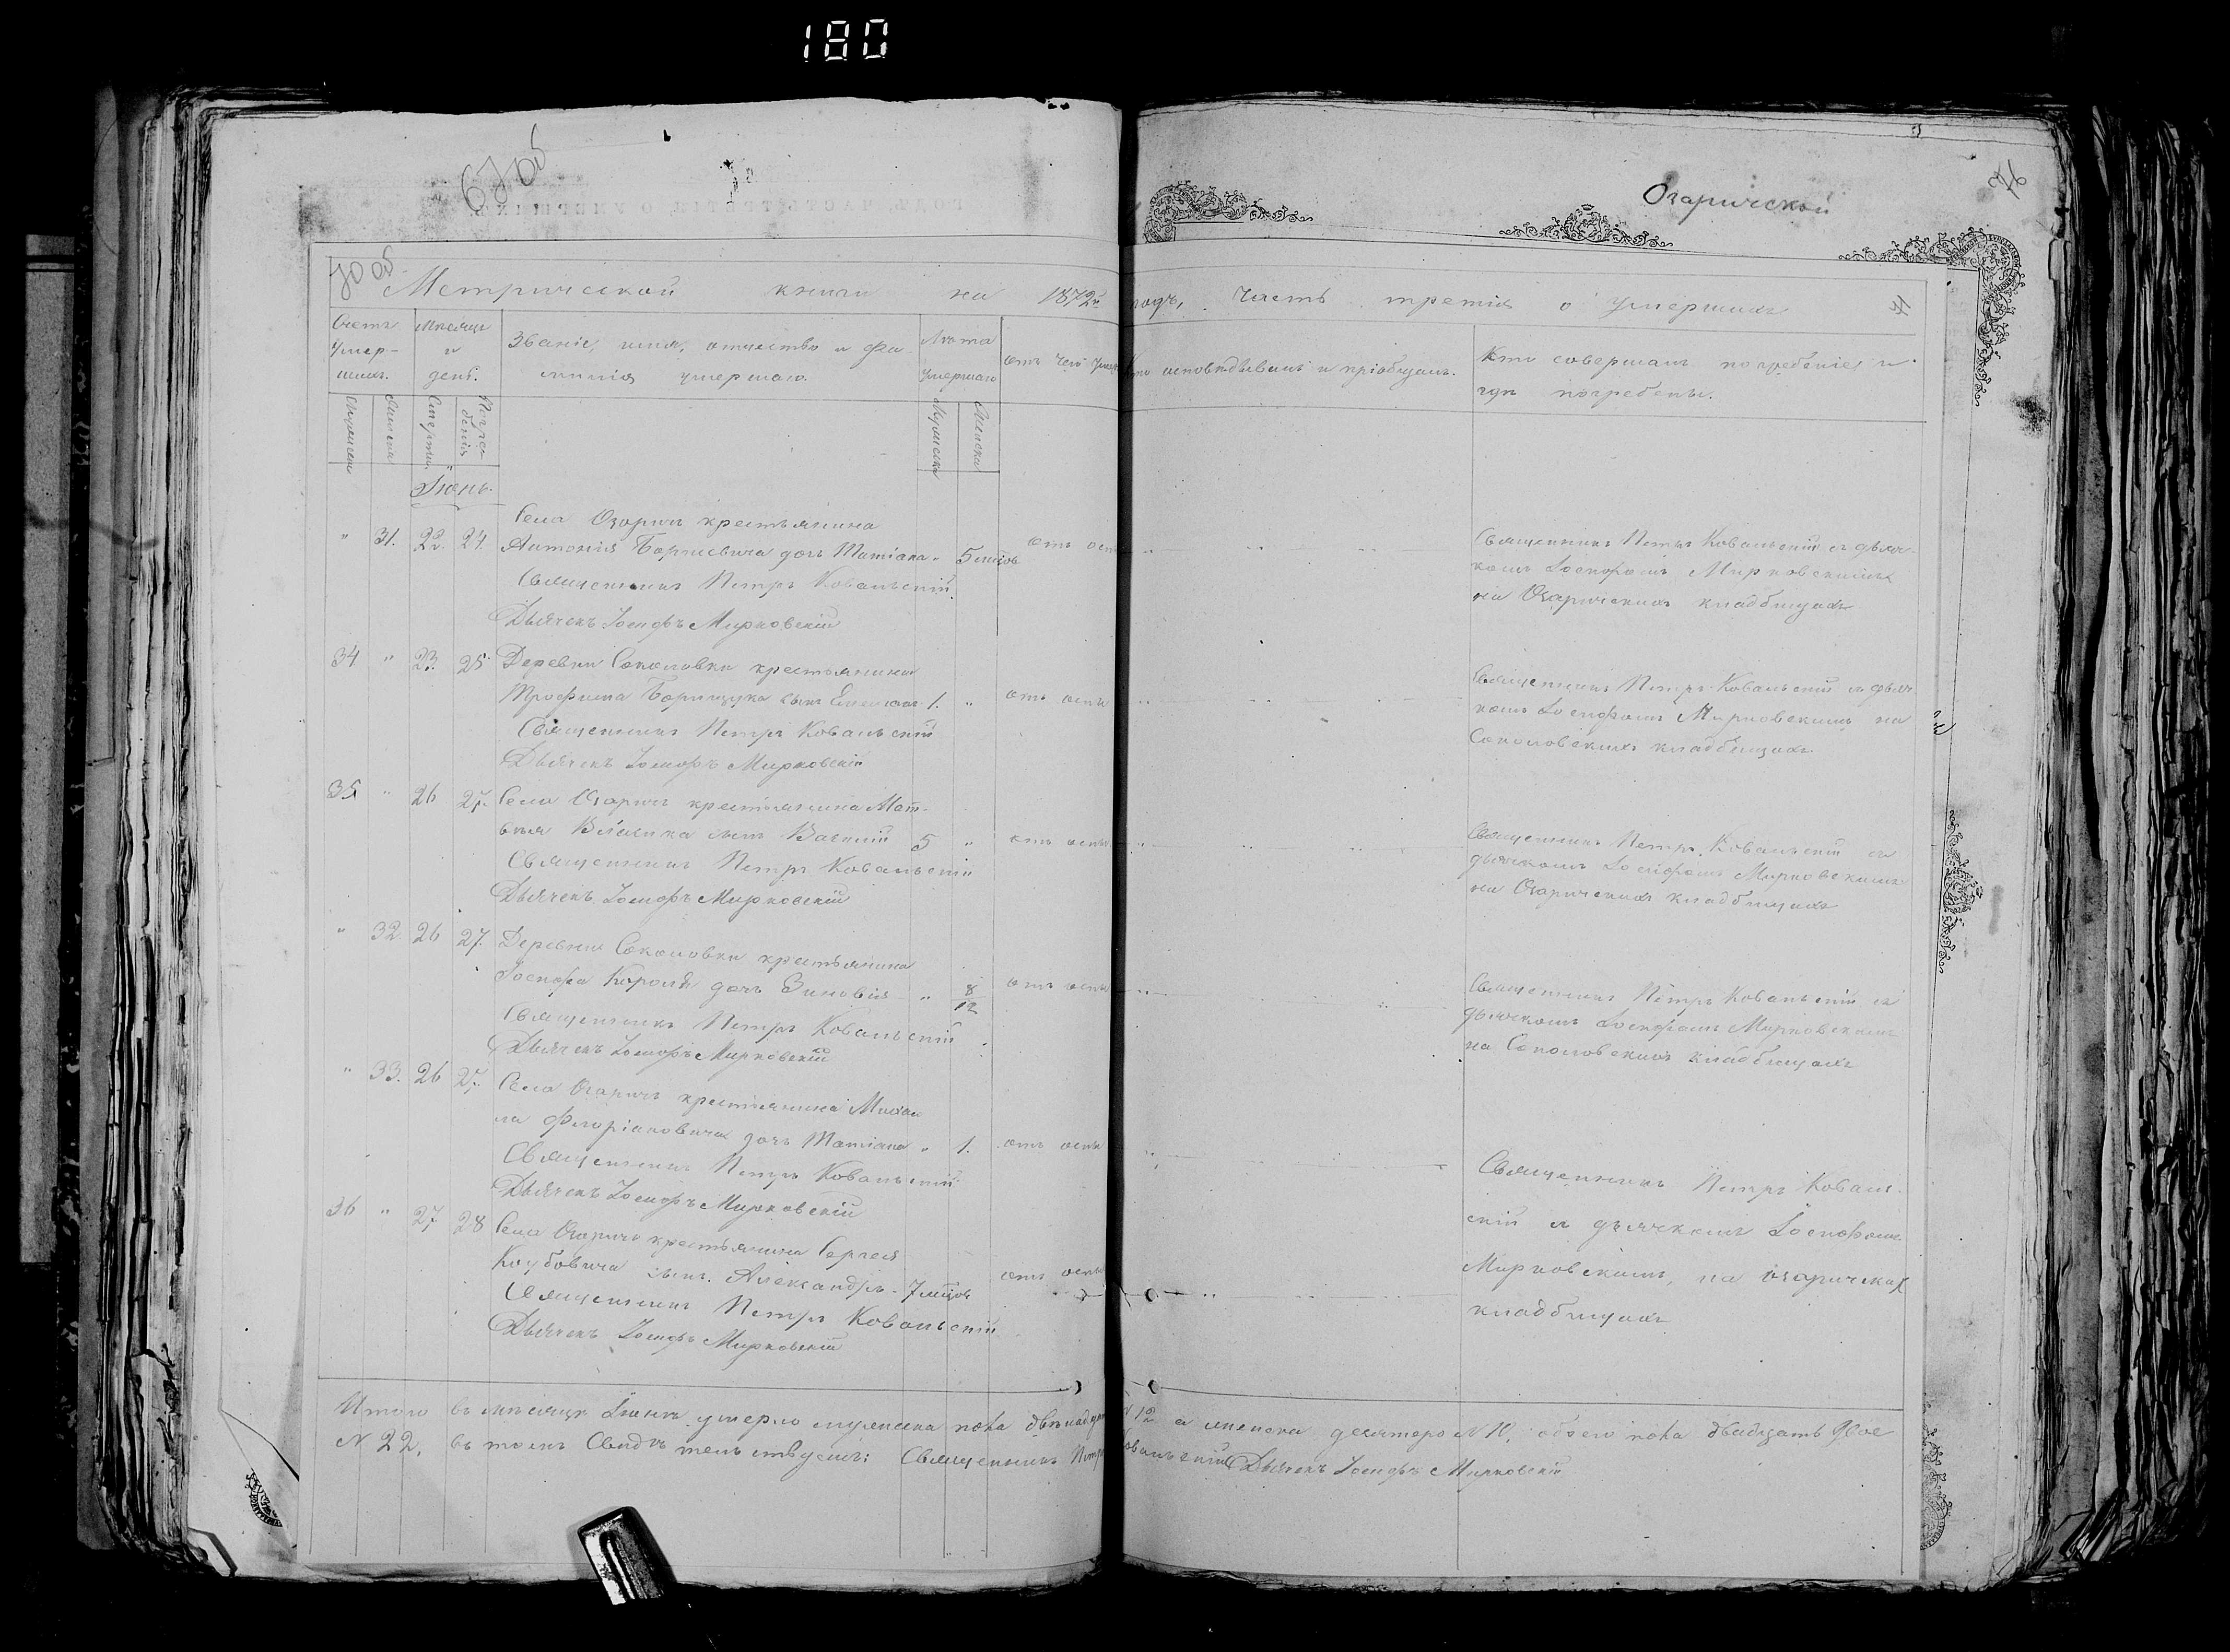 180
67 об
Озаричской
71
70 об
Метрической книги на 1872й годъ, Часть третія о умершихъ
71
Счетъ умер-шихъ.
Мѣсяцъ и день.
Званіе, имя, отчество и фа-
милія умершаго.
Лѣта умершаго
отъ чего умеръ
Кто исповѣдывалъ и пріобщалъ.
Кто совершалъ погребеніе и
гдѣ погребены.
Мужеска
Женска
Смерти
Погре-
бенія
Мужеска
Женска
Іюнь.
Села Озаричъ крестьянина
" 31. 22. 24. Антонія Борисевича дочь Татіана " 5 мѣсцов отъ оспы
Священникъ Петръ Ковальскій
Дьячекъ Іосифъ Мирковскій
Священникъ Петръ Ковальскій съ дьяч-
комъ Іосифомъ Мирковскимъ
на Озаричскихъ кладбищахъ
34 " 23. 25. Деревни Соколовки крестьянина
Трофима Борищука сынъ 1. " отъ оспы
Священникъ Петръ Ковальскій
Дьячекъ Іосифъ Мирковскій
Священникъ Петръ Ковальскій съ дьяч-
комъ Іосифомъ Мирковскимъ на
Соколовскихъ кладбищахъ
35 " 26 27. Села Озаричъ крестьянина Мат-
вѣя сынъ 5 " отъ оспы
Священникъ Петръ Ковальскій
Дьячекъ Іосифъ Мирковскій
Священникъ Петръ Ковальскій съ
дьячкомъ Іосифомъ Мирковскимъ
на Озаричскихъ кладбищахъ
" 32. 26 27. Деревни Соколовки крестьянина
Іосифа Короля дочь Зиновія " 8/12 отъ оспы
Священникъ Петръ Ковальскій
Дьячекъ Іосифъ Мирковскій
Священникъ Петръ Ковальскій съ
дьячкомъ Іосифомъ Мирковскимъ
на Соколовскихъ кладбищахъ
" 33. 26 27. Села Озаричъ крестьянина Михаи-
ла Флоріановича дочь Татіана " 1. отъ оспы
Священникъ Петръ Ковальскій
Дьячекъ Іосифъ Мирковскій
Священникъ Петръ Коваль-
скій съ дьячкомъ Іосифомъ
Мирковскимъ, на озаричскихъ
кладбищахъ
36 " 27 28 Села Озаричъ крестьянина Сергея
сынъ Александръ - 7 мѣсцов отъ оспы
Священникъ Петръ Ковальскій
Дьячекъ Іосифъ Мирковскій
Итого въ мѣсяцѣ Іюнѣ умерло мужеска пола двѣнадцать N 12 а женска десятеро N 10, обоего пола двадцать двое
N 22, въ томъ Свидѣтельствуемъ: Священникъ Петръ Ковальскій Дьячекъ Іосифъ Мирковскій